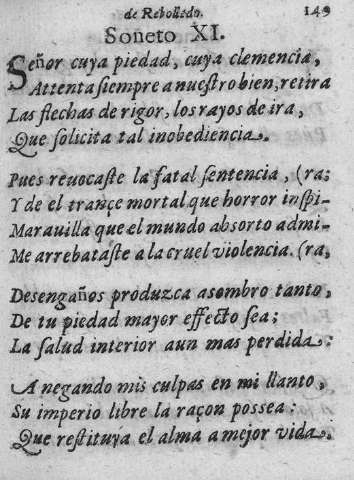 de Rebolledo. 149
Soneto XI.
Señor cuya piedad, cuya clemencia,
Attenta siempre a nuestro bien, retira
Las flechas de rigor, los rayos de ira,
Que solicita tal inobediencia.
Pues reuocaste la fatal sentencia, (ra;
Y de el trançe mortal que horror inspi-
Marauilla que el mundo absorto admi-
Me arrebataste a la cruel violencia. (ra,
Desengaños produzca asombro tanto,
De tu piedad mayor effecto sea;
La salud interior aun mas perdida.
Anegando mis culpas en mi llanto,
Su imperio libre la raçon possea:
Que restituya el alma a mejor vida.